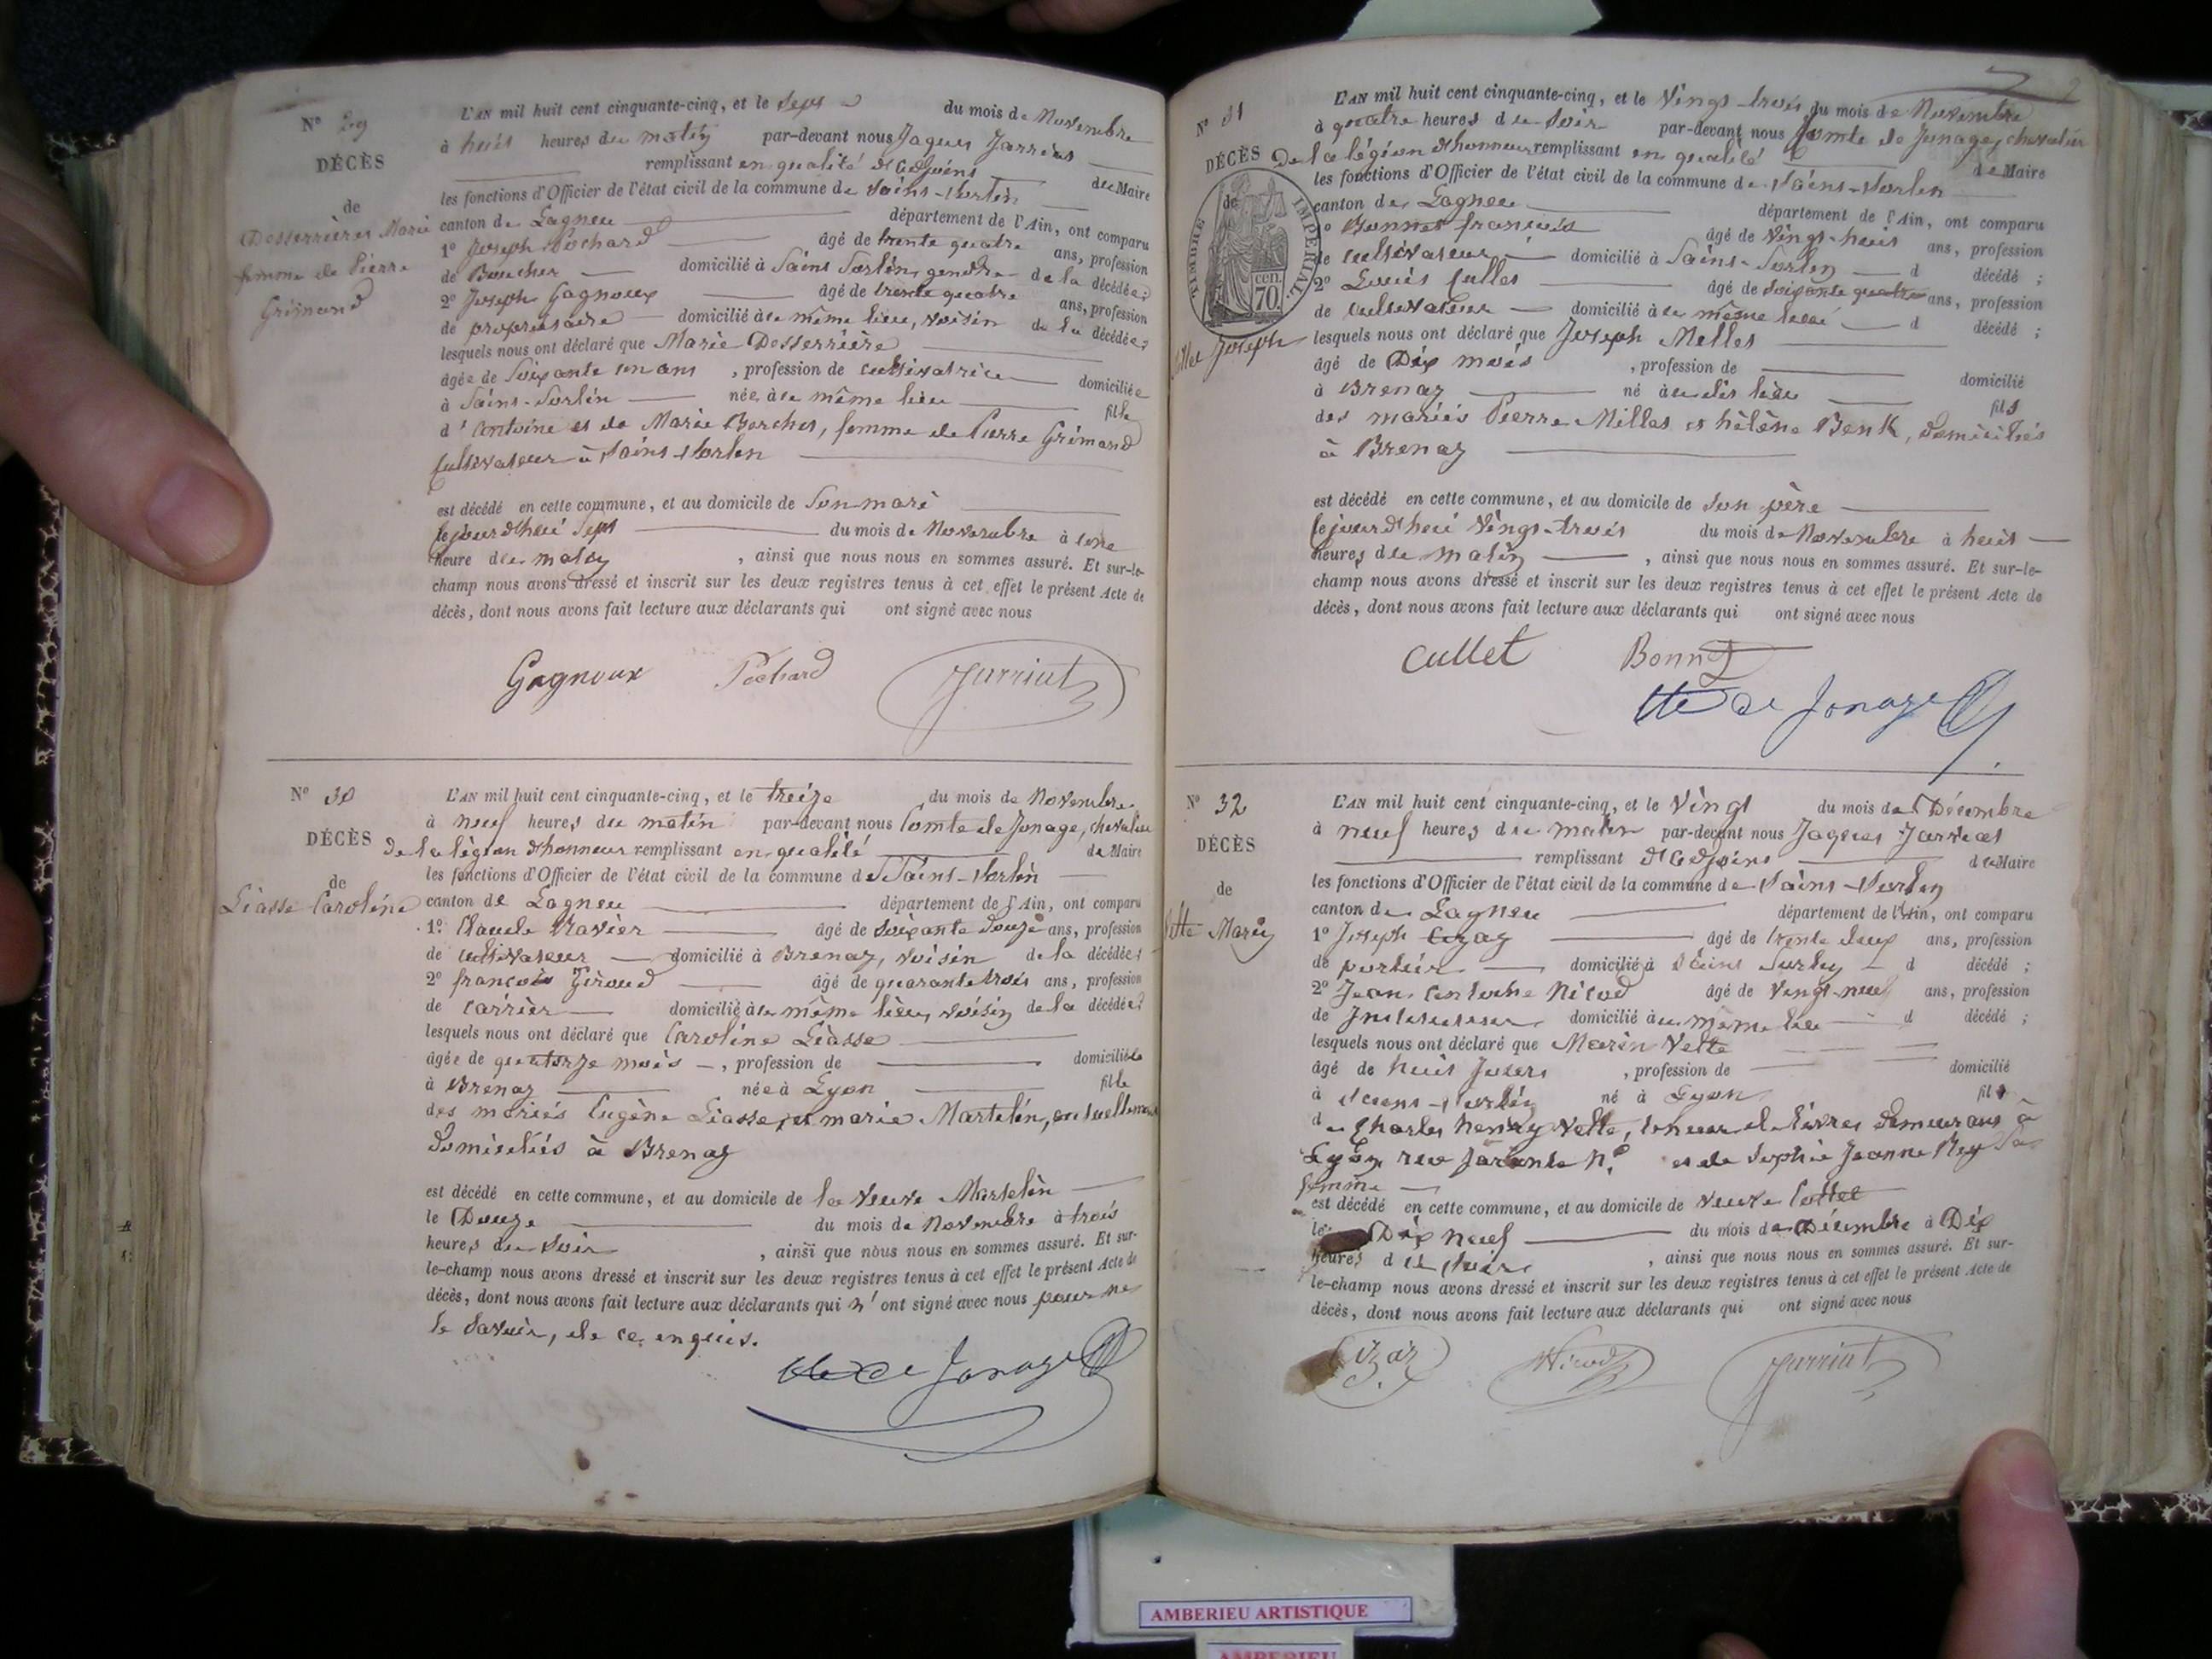 N° 29
DÉCÈS
de
Desserrières Marie
femme de Pierre
Grimand
L'AN mil huit cent cinquante-cinq, et le Sept du mois de Novembre
à huit heures du matin par-devant nous Jaques Jarriat
remplissant en qualité d'adjoint du Maire
les fonctions d'Officier de l'état civil de la commune de Saint-Sorlin
canton de Lagneu département de l'Ain, ont comparu
1° Joseph Pochard âgé de trente quatre ans, profession
de Boucher domicilié à Saint Sorlin, gendre de la décédée;
2° Joseph Gagnoux âgé de trente quatre ans, profession
de propriétaire domicilié au même lieu, voisin de la décédée;
lesquels nous ont déclaré que Marie Desserrière
âgée de Soixante un ans, profession de cultivatrice domiciliée
à Saint-Sorlin née au même lieu fille
d'Antoine et de Marie Borchet, femme de Pierre Grimand
Cultivateur à Saint-Sorlin
est décédé en cette commune, et au domicile de Son mari
Cejourd'hui Sept du mois de Novembre à une
heure du matin, ainsi que nous nous en sommes assuré. Et sur-le-
champ nous avons dressé et inscrit sur les deux registres tenus à cet effet le présent Acte de
décès, dont nous avons fait lecture aux déclarants qui ont signé avec nous
Gagnoux Pochard Jarriat
N° 30
DÉCÈS
de
Liasse Caroline
L'AN mil huit cent cinquante-cinq, et le treize du mois de Novembre
à neuf heures du matin par-devant nous Comte de Jonage, chevalier
De la légion d'honneur remplissant en qualité de Maire
les fonctions d'Officier de l'état civil de la commune de Saint-Sorlin
canton de Lagneu département de l'Ain, ont comparu
1° Claude Ravier âgé de Soixante Douze ans, profession
de cultivateur domicilié à Brenaz, voisin de la décédée;
2° françois Giroud âgé de quarante trois ans, profession
de Carrier domicilié au même lieu, voisin de la décédée;
lesquels nous ont déclaré que Caroline Liasse
âgée de quatorze mois, profession de domiciliée
à Brenaz née à Lyon fille
des mariés Eugène Liasse, et marie Martelin, actuellement
Domiciliés à Brenaz
est décédé en cette commune, et au domicile de la veuve Martelin
le Douze du mois de Novembre à trois
heures du Soir, ainsi que nous nous en sommes assuré. Et sur-
le-champ nous avons dressé et inscrit sur les deux registres tenus à cet effet le présent Acte de
décès, dont nous avons fait lecture aux déclarants qui n'ont signé avec nous pour ne
le Savoir, de ce enquis.
Cte de Jonage
N° 31
DÉCÈS
de
TIMBRE IMPÉRIAL
70 cen.
Joseph
L'AN mil huit cent cinquante-cinq, et le Vingt-trois du mois de Novembre
à quatre heures du Soir par-devant nous Comte de Jonage, chevalier
De la légion d'honneur remplissant en qualité de Maire
les fonctions d'Officier de l'état civil de la commune de Saint-Sorlin
canton de Lagneu département de l'Ain, ont comparu
1° Bonnet françois âgé de Vingt-huit ans, profession
de cultivateur domicilié à Saint-Sorlin d décédé;
2° Louis Cullet âgé de Soixante quatre ans, profession
de Cultivateur domicilié au même lieu d décédé;
lesquels nous ont déclaré que Joseph Millet
âgé de Dix mois, profession de domicilié
à Brenaz né au dit lieu fils
des mariés Pierre Millet et hélène Benk, domiciliés
à Brenaz
est décédé en cette commune, et au domicile de Son père
Cejourd'hui Vingt-trois du mois de Novembre à huit
heures du matin, ainsi que nous nous en sommes assuré. Et sur-le-
champ nous avons dressé et inscrit sur les deux registres tenus à cet effet le présent Acte de
décès, dont nous avons fait lecture aux déclarants qui ont signé avec nous
Cullet Bonnet
Cte de Jonage
N° 32
DÉCÈS
de
Vette Marin
L'AN mil huit cent cinquante-cinq, et le Vingt du mois de Décembre
à neuf heures du matin par-devant nous Jaques Jarriat
remplissant d'adjoint du Maire
les fonctions d'Officier de l'état civil de la commune de Saint-Sorlin
canton de Lagneu département de l'Ain, ont comparu
1° Joseph âgé de trente deux ans, profession
de domicilié à Saint Sorlin d décédé;
2° Jean Antoine Nicod âgé de Vingt-neuf ans, profession
de Instituteur domicilié au même lieu d décédé;
lesquels nous ont déclaré que Marin Vette
âgé de huit Jours, profession de domicilié
à Saint-Sorlin né à Lyon fils
de Charles henry Vette, teneur de livres demeurant à
Lyon rue Jarente N° et de Sophie Jeanne Rey Sa
femme
est décédé en cette commune, et au domicile de veuve Cottet
le Dix neuf du mois de Décembre à Dix
heures du Soir, ainsi que nous nous en sommes assuré. Et sur-
le-champ nous avons dressé et inscrit sur les deux registres tenus à cet effet le présent Acte de
décès, dont nous avons fait lecture aux déclarants qui ont signé avec nous
Nicod Jarriat
AMBERIEU ARTISTIQUE
AMBERIEU